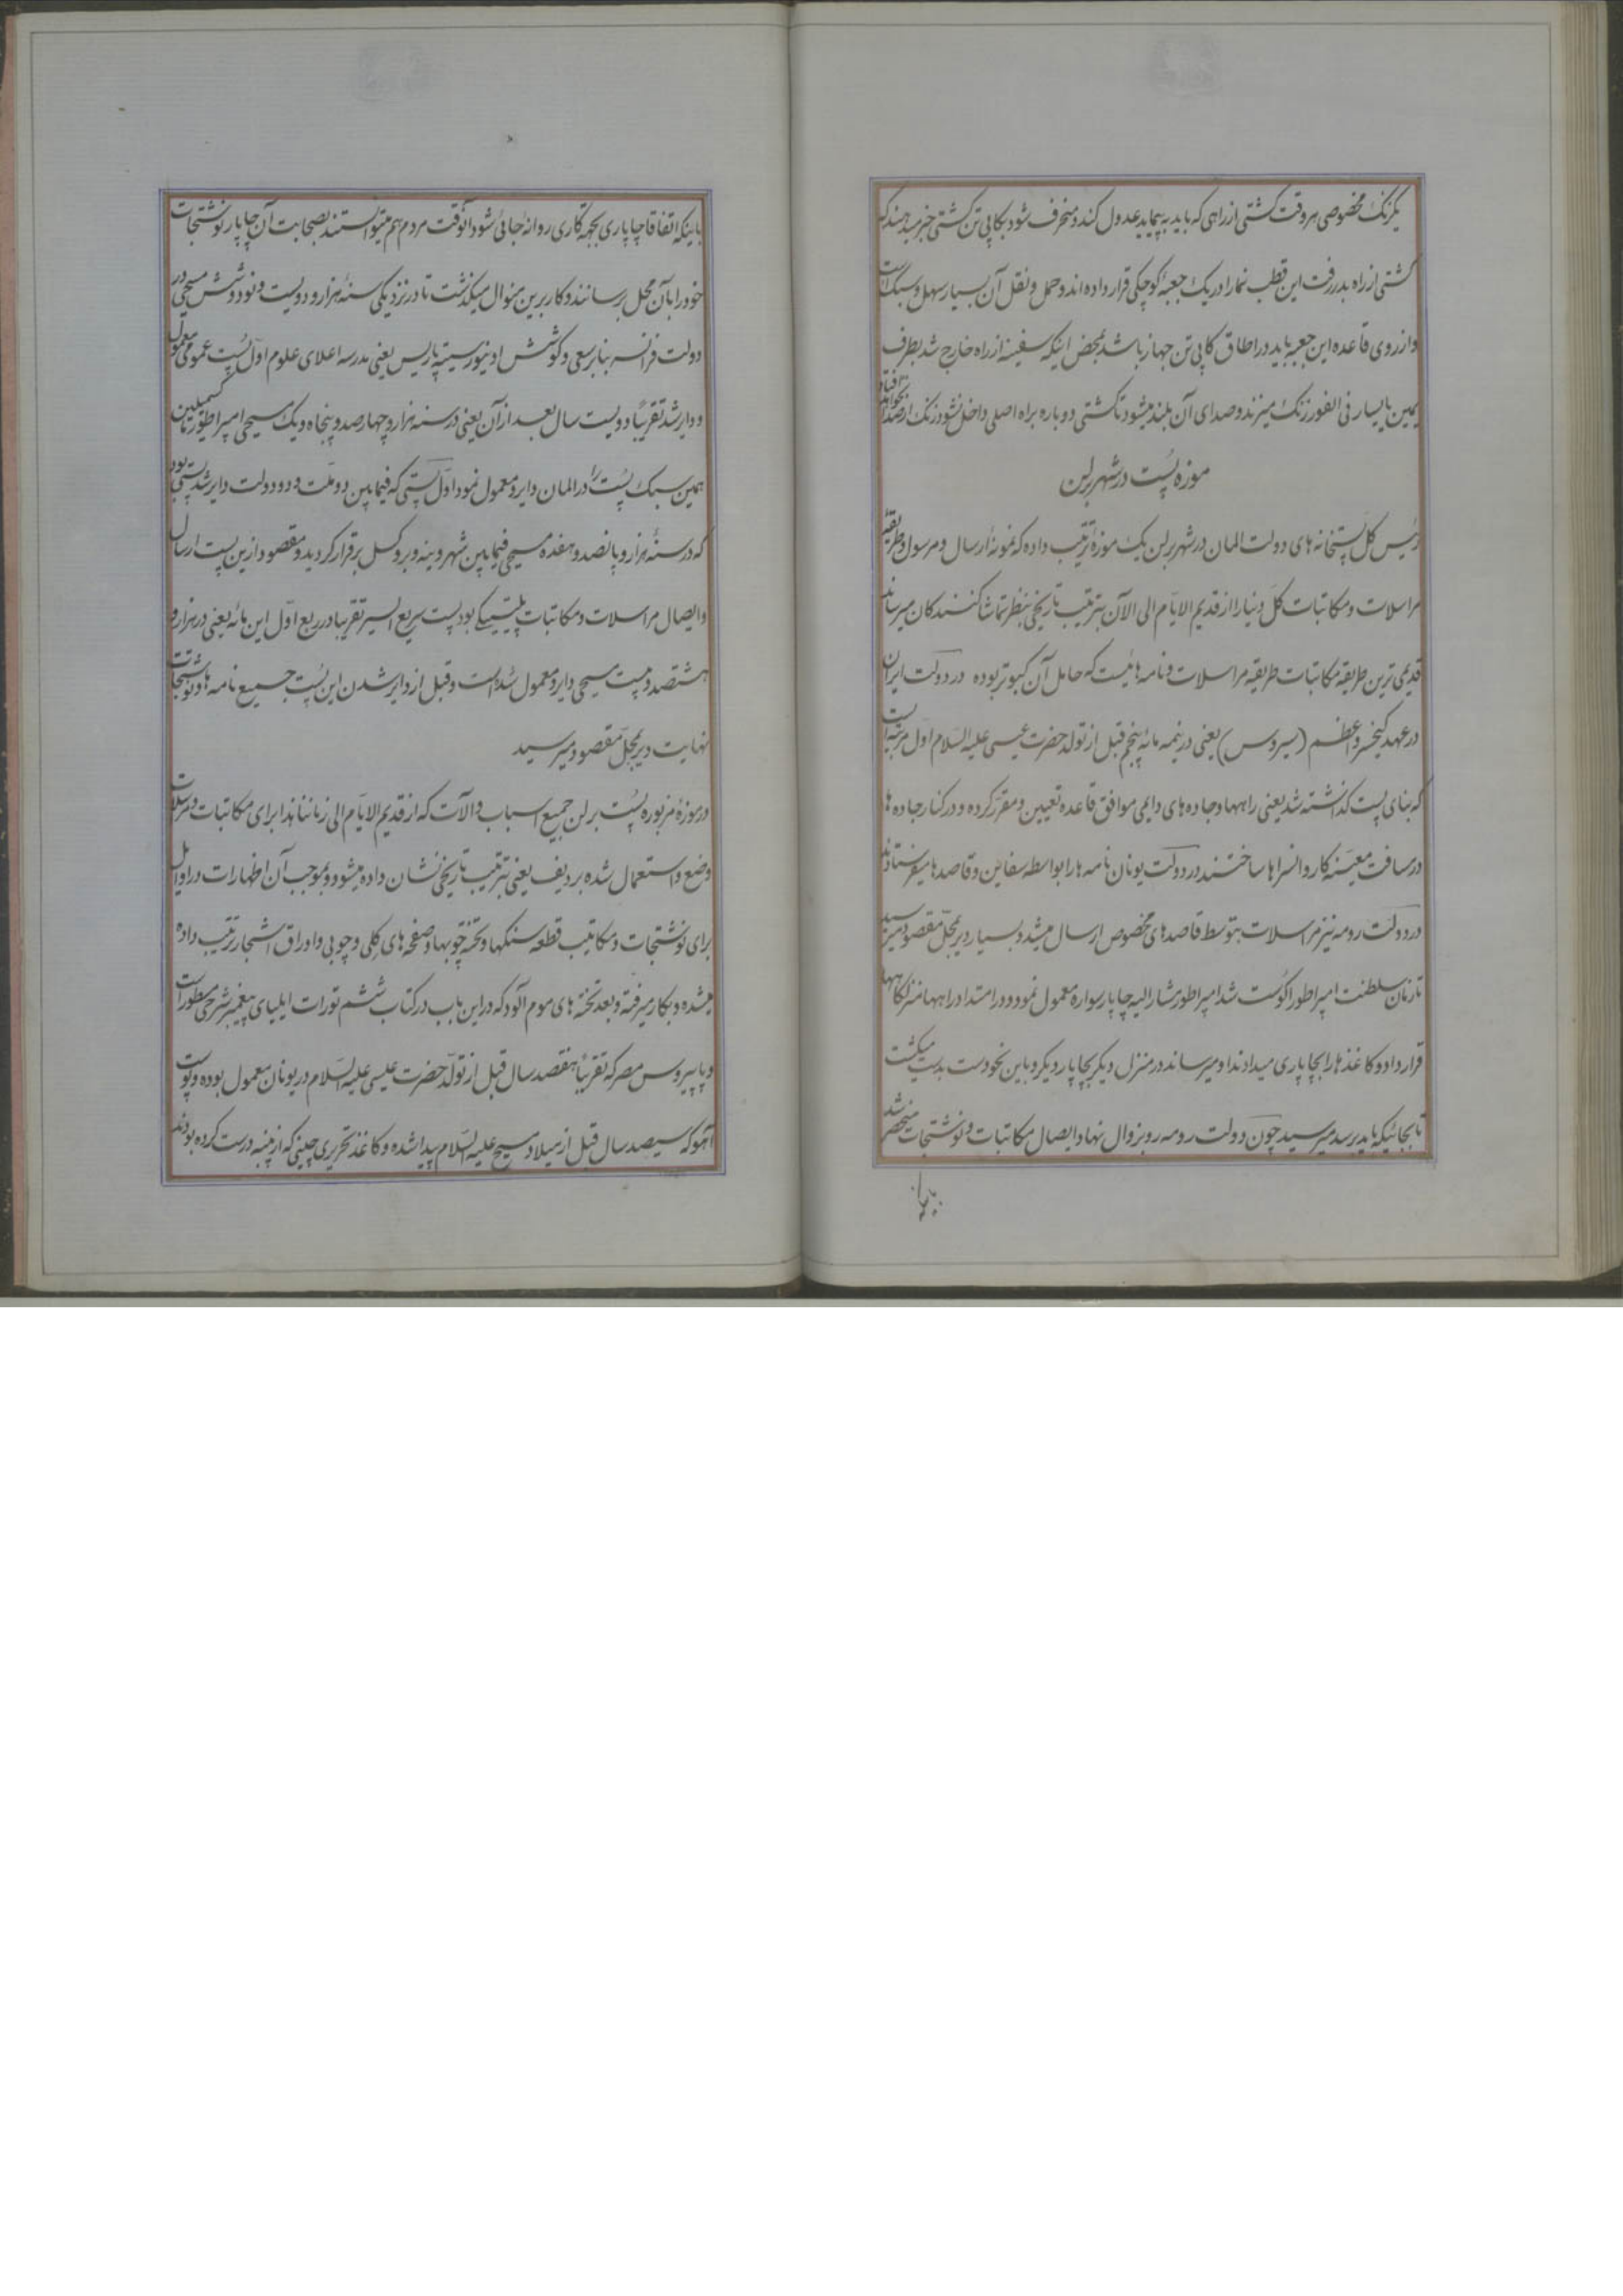 یکزنک مخصوصی هر وقت کشتی از راهی که باید به پیماید عدول کند و منحرف شود بکاپی تن کشتی خبر میدهند که
کشتی از راه بدر رفت این قطب نما را در یک جعبهٔ کوچکی قرار داده اند و حمل و نقل آن بسیار سهل و سبک است
و از روی قاعده این جعبه باید در اطاق کاپی تن جهاز باشد بمحض اینکه سفینه از راه خارج شد بطرف
یمین یا یسار فی الفور زنک میزند و صدای آن بلند میشود تا کشتی دوباره براه اصلی داخل نشود زنک از صدا نخواهد افتاد
موزه پُست در شهر برلن
رئیس کل پستخانه های دولت المان در شهر برلن یک موزهٔ ترتیب داده که نمونهٔ ارسال و مرسول و طریقهٔ
مراسلات و مکاتبات کل دنیا را از قدیم الایّام الی الآن بترتیب تاریخی بنظر تماشا کنندکان میرساند
قدیمی ترین طریقه مکاتبات طریقه مراسلات و نامه هائیست که حامل آن کبوتر بوده در دولت ایران
در عهد کیخسرو اعظم (سیروس) یعنی در نیمه مائه پنجم قبل از تولد حضرت عیسی علیه السّلام اول مرتبه است
که بنای پست کذاشته شد یعنی راهها و جاده های دایمی موافق قاعده تعیین و مقرّر کرده و در کنار جاده ها
در مسافت معیّنه کاروانسراها ساختند در دولت یونان نامه ها را بواسطه سفاین و قاصدها میفرستادند
در دولت رومه نیز مراسلات بتوسط قاصدهای مخصوص ارسال میشد و بسیار دیر بمحلّ مقصود میرسید
تا زمان سلطنت امپراطور اکوست شد امپراطور مشار الیه چاپار سواره معمول نمود و در امتداد راهها منزلکاهها
قرار داد و کاغذها را بچاپاری میدادند او میرساند در منزل دیکر بچاپار دیکر و باین نحو دست بدست میکشت
تا بجائیکه باید برسد میرسید چون دولت رومه رو بزوال نهاد ایصال مکاتبات و نوشتجات منحصر شد
باینکه
باینکه اتفاقا چاپاری بجهة کاری روانهٔ جائی شود آنوقت مردم هم میتوانستند بصحابت آن چاپار نوشتجات
خود را بآن محل برسانند و کار برین منوال میکذشت تا در نزدیکی سنهٔ هزار و دویست و نود و شش مسیحی در
دولت فرانسه بنابر سعی و کوشش اونیورسیتهٔ پاریس یعنی مدرسه اعلای علوم اول پُست عمومی معمول
و دایر شد تقریباً دویست سال بعد از آن یعنی در سنه هزار و چهار صد و پنجاه و یک مسیحی امپراطور ماکسیمیلین
همین سبک پُست را در المان دایر و معمول نمود اوّل پستی که فیما بین دو ملّت و دو دولت دایر شد پستی بود
که در سنهٔ هزار و پانصد و هفده مسیحی فیما بین شهر وینه و بروکسل برقرار کردید و مقصود ازین پست ارسال
و ایصال مراسلات و مکاتبات پلیتیکی بود پست سریع السیر تقریبا در ربع اوّل این مائه یعنی در هزار و
هشتصد و بیست مسیحی دایر و معمول شده است و قبل از دایر شدن این پُست جمیع نامه ها و نوشتجات
نهایت دیر بمحلّ مقصود میرسید
در موزهٔ مزبوره پُست برلن جمیع اسباب و آلات که از قدیم الایّام الی زماننا هذا برای مکاتبات و مراسلات
وضع و استعمال شده بر دیف یعنی بترتیب تاریخی نشان داده میشود و بموجب آن اظهارات در اوایل
برای نوشتجات و مکاتیب قطعه سنکها و تخته چوبها و صفحه های کِلی و چوبی و اوراق اشجار ترتیب داده
میشده و بکار میرفته و بعد تخته های موم آلود که در این باب در کتاب ششم تورات ایلیای پیغمبر شرحی مسطور است
و پاپیروس مصر که تقریباً هفتصد سال قبل از تولّد حضرت عیسی علیه السّلام در یونان معمول بوده و پوست
آهو که سیصد سال قبل از میلاد مسیح علیه السّلام پیدا شده و کاغذ تحریری چینی که از پنبه درست کرده بودند